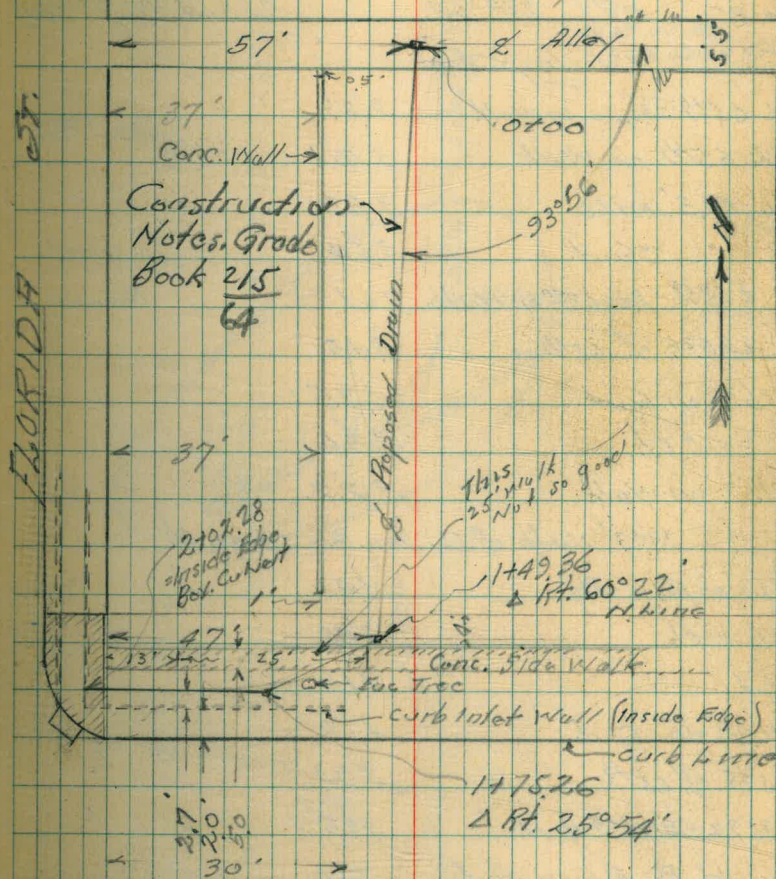 57'
℄ Alley
5.5'
0.5'
St.
37'
0+00
Conc. Wall
93°56'
Construction
Notes. Grade
Book 215
64
N
℄ Proposed Drain
FLORIDA
37'
This
25' walk
Not so good
2+02.28
=Inside Edge
Box Culvert
1+49.36
Δ Rt. 60°22'
N. Line
1'
47'
13'
25'
Conc. Side Walk
Euc Tree
Curb Inlet Wall (Inside Edge)
Curb Line
1+75.26
Δ Rt. 25°54'
2.7'
2.0'
5.0'
30'